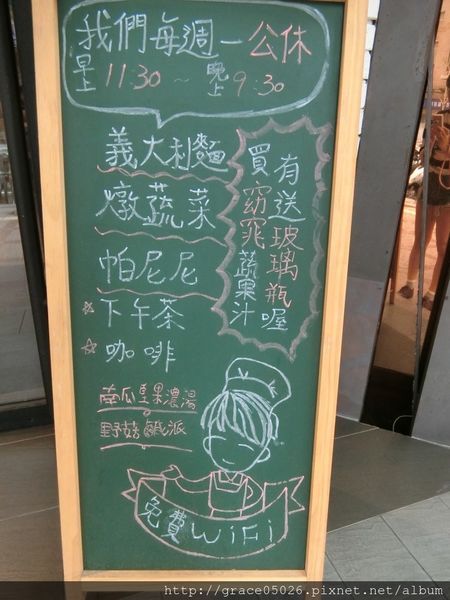 我們每週一公休
早上 11:30 ~ 晚上 9:30
義大利麵
燉蔬菜
帕尼尼
☆下午茶
☆咖啡
南瓜堅果濃湯
野菇鹹派
買窈窕蔬果汁
有送玻璃瓶喔
免費WiFi
http://grace05026.pixnet.net/album